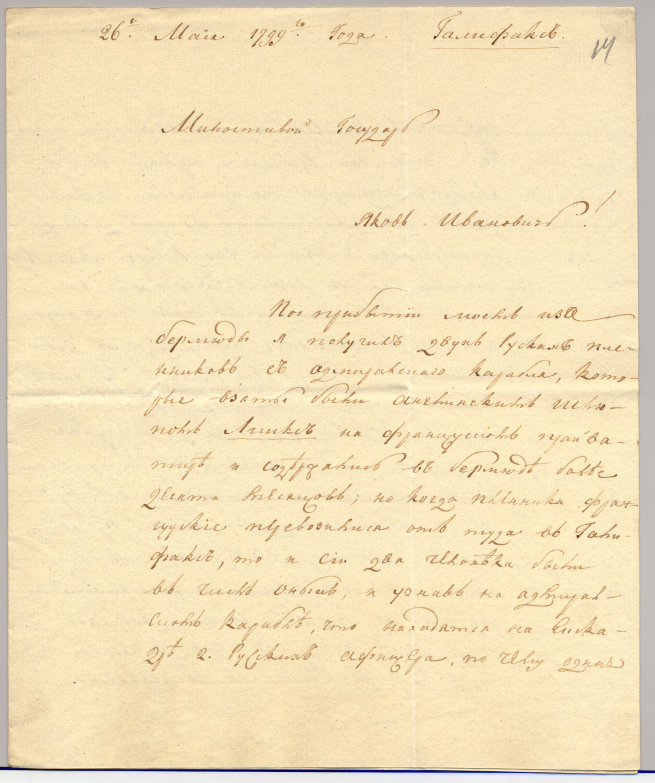 26е. Маiя 1799го. Года. Галифаксъ.
14
Милостивой Государь
Яковъ Ивановичь!
По прибытiи моемъ изъ
бермюды я получилъ двухъ Рускихъ пле-
нниковъ съ адмиральскаго карабля, кото-
рые взяты были англинскимъ шлю-
помъ Линксъ на французскомъ прайва-
тирѣ и содержались въ бермюдѣ болѣе
десяти месяцовъ; но когда пленники фран-
цускiе перевозились отъ туда въ Гали-
факсъ, то и сiи два человѣка были
въ числѣ оныхъ, и узнавъ на адмираль-
скомъ караблѣ, что находятся на Еска-
дрѣ 2. Рускихъ афицера, по чему одинъ